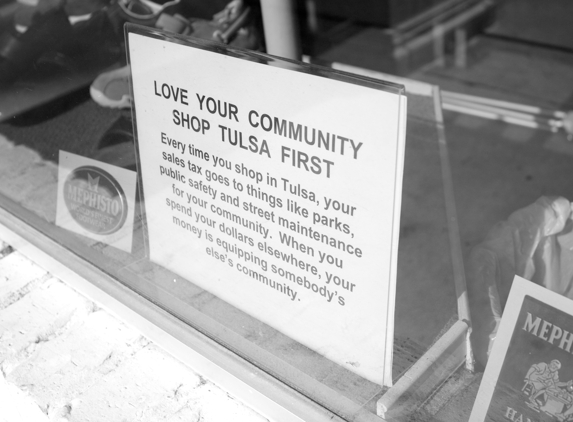 LOVE YOUR COMMUNITY
SHOP TULSA FIRST
Every time you shop in Tulsa, your
sales tax goes to things like parks,
public safety and street maintenance
for your community. When you
spend your dollars elsewhere, your
money is equipping somebody's
else's community.
MEPHISTO
MEPH
HAN